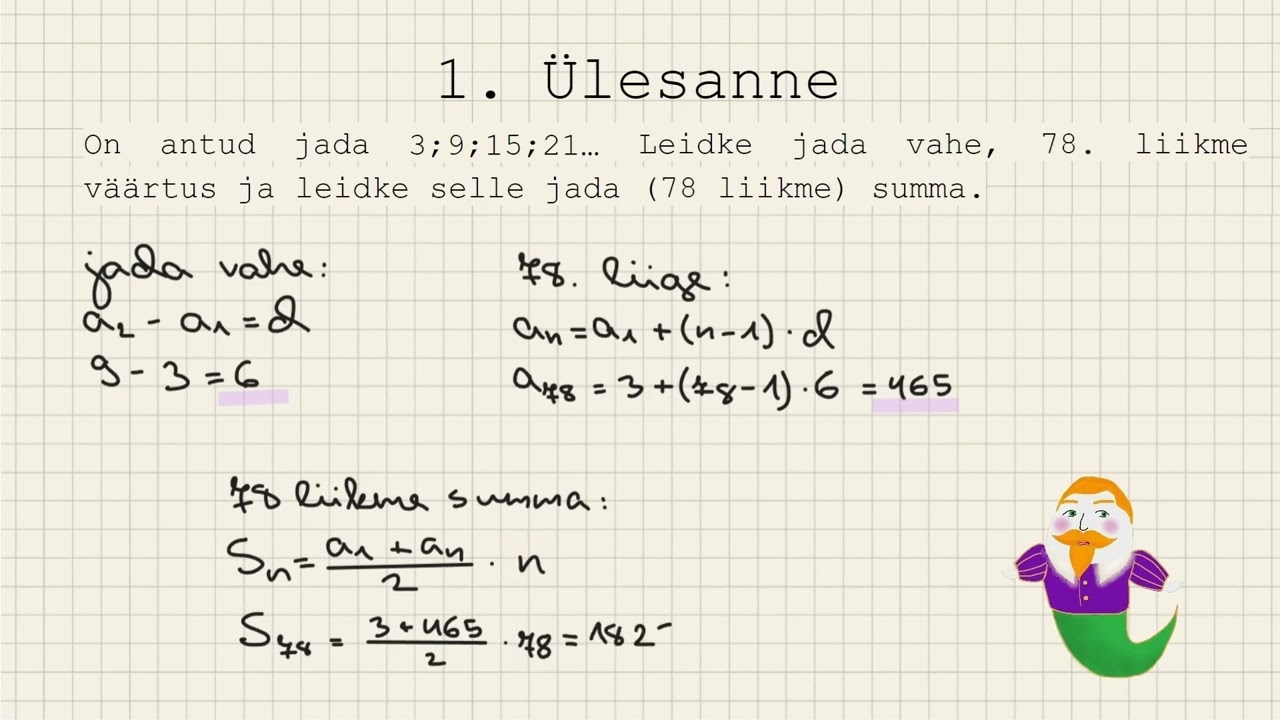 1. Ülesanne
On antud jada 3;9;15;21… Leidke jada vahe, 78. liikme
väärtus ja leidke selle jada (78 liikme) summa.
jada vahe:
a₂ - a₁ = d
9 - 3 = 6
78. liige:
aₙ = a₁ + (n-1) · d
a₇₈ = 3 + (78-1) · 6 = 465
78 liikme summa:
Sₙ = (a₁ + aₙ)/2 · n
S₇₈ = (3 + 465)/2 · 78 = 182